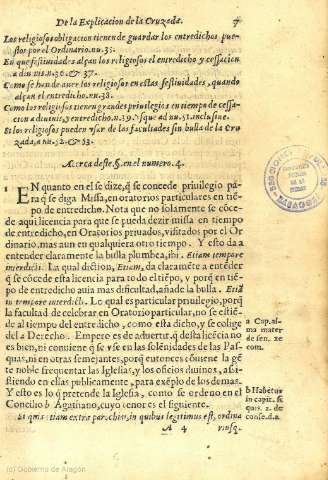 De la Explicacion de la Cruzada. 4
Los religiosos obligacion tienen de guardar los entredichos pue-
stos por el Ordinario. nu. 35.
En que festiuidades alçan los religiosos el entredicho y cessacion
a diuinis. n. 36. & 37.
Como se han de auer los religiosos en estas festiuidades, quando
alçan el entredicho. nu. 38.
Como los religiosos tienen grandes priuilegios en tiempo de cessa-
cion a diuinis, y entredicho. n. 39. vsque ad nu. 51. inclusiue.
Si los religiosos pueden vsar de las facultades sin bulla de la Cru
zada, a nu. 52. & 63.
Acerca deste. §. en el numero. 4.
EN quanto en el se dize, q̃ se concede priuilegio pá-
ra q̃ se diga Missa, en oratorios particulares en tiẽ-
po de entredicho. Nota que no solamente se cõce-
de aqui licencia para que se pueda dezir missa en tiempo
de entredicho, en Oratorios priuados, visitados por el Or
dinario, mas aun en qualquiera otro tiempo. Y esto da a
entender claramente la bulla plumbea, ibi. Etiam tempore
interdicti. La qual diction, Etiam, da claramẽte a entẽder
q̃ se cõcede esta licencia para todo el tiẽpo, y porq̃ en tiẽ-
po de entredicho auia mas dificultad, añade la bulla. Etiã
in tempore interdicti. Lo qual es particular priuilegio, porq̃
la facultad de celebrar, en Oratorio particular, no se estiẽ-
de al tiempo del entredicho, como esta dicho, y se colige
del a Derecho. Empero es de aduertir, q̃ desta licẽcia no
es bien, ni conuiene q̃ se vse en las solẽnidades de las Pas-
quas, ni en otras semejantes, porq̃ entonces cõuiene la gẽ
te noble frequentar las Iglesias, y los oficios diuinos, asi-
stiendo en ellas publicamente, para exẽplo de los demas.
Y esto es lo q̃ pretende la Iglesia, como se ordeno en el
Concilio b Agatino, cuyo tenor es el siguiente.
Si quis etiam extra parochias, in quibus legitimus est, ordina
A 4 riusq̃.
a Cap. al-
ma mater
de sen. ex
com.
b Habetur
in capit. si
quis. 2. de
conse. d. 1.
(c) Gobierno de Aragón